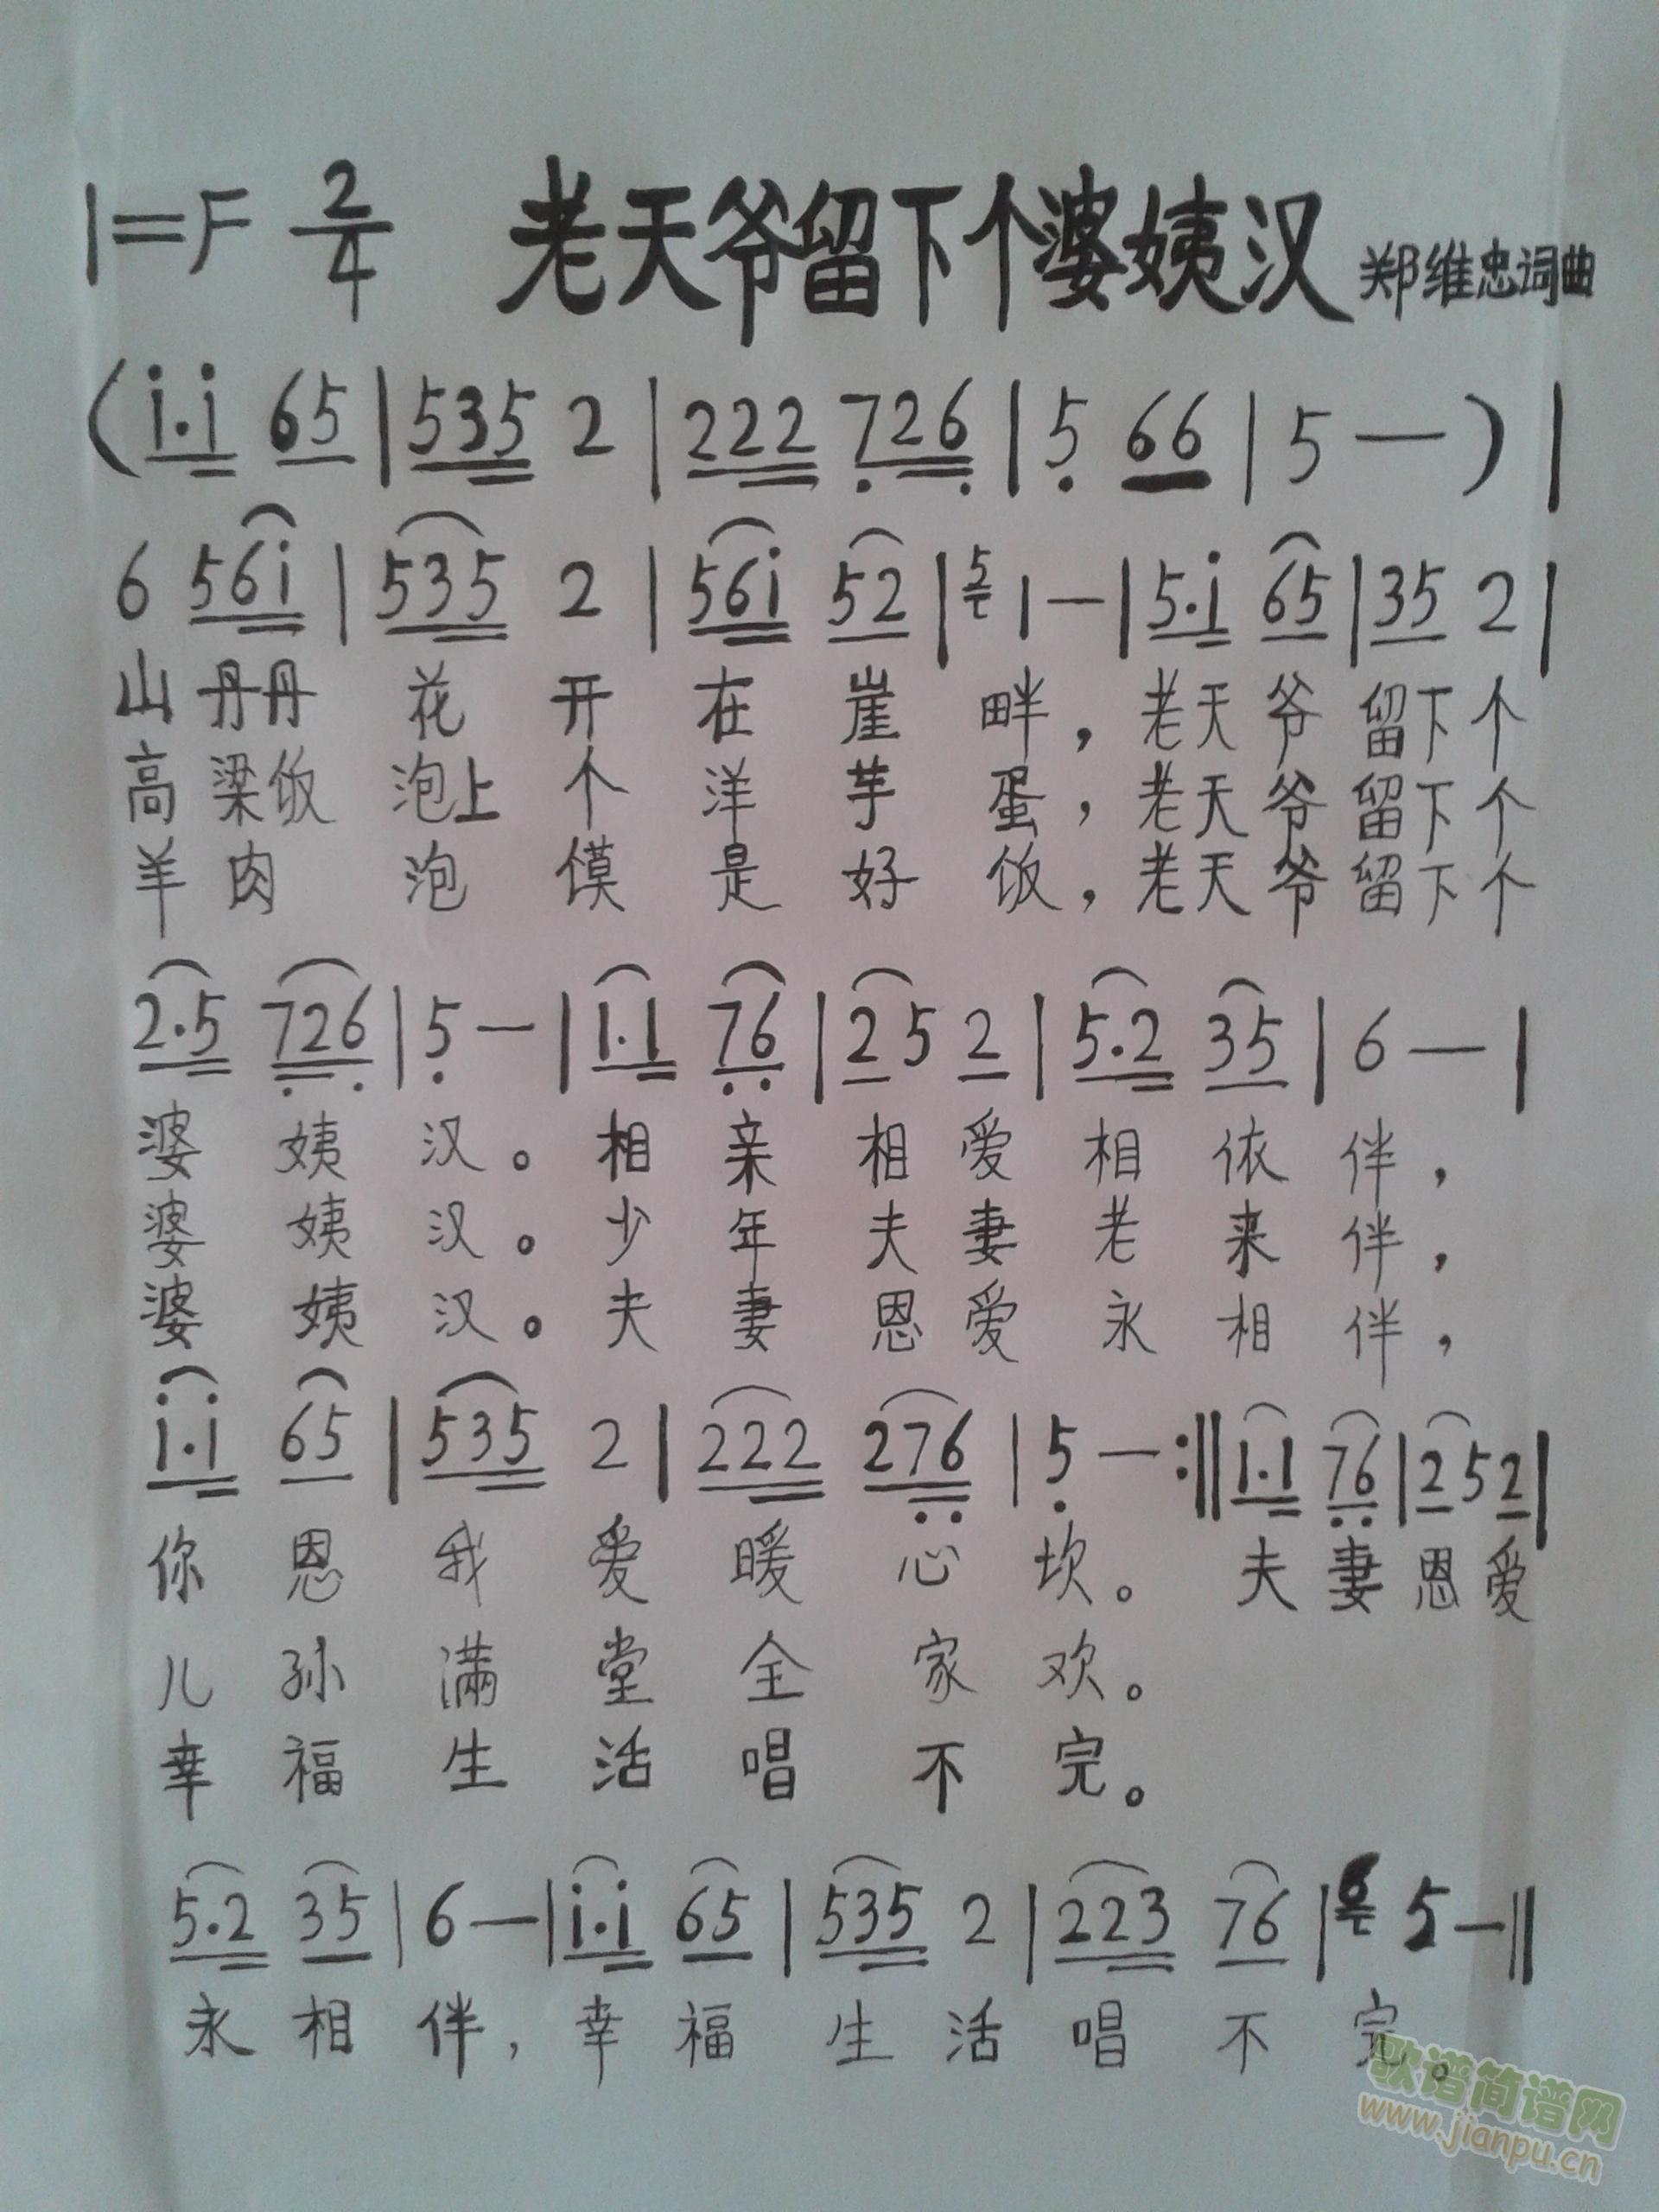 1=F 2/4 老天爷留下个婆姨汉 郑维忠词曲
(i·i 65 | 535 2 | 222 726 | 5 66 | 5 — ) |
6 56i | 535 2 | 56i 52 | 5 1 — | 5·i 65 | 35 2 |
山 丹丹 花 开 在 崖 畔，老天爷 留下个
高 梁饭 泡上 个 洋 芋 蛋，老天爷 留下个
羊 肉 泡 馍 是 好 饭，老天爷 留下个
2·5 726 | 5 — | 1·1 76 | 2 5 2 | 5·2 35 | 6 — |
婆 姨 汉。相 亲 相 爱 相 依 伴，
婆 姨 汉。少 年 夫 妻 老 来 伴，
婆 姨 汉。夫 妻 恩 爱 永 相 伴，
i·i 65 | 535 2 | 222 276 | 5 — :‖ 1·1 76 | 2 5 2 |
你 恩 我 爱 暖 心 坎。 夫 妻 恩 爱
儿 孙 满 堂 全 家 欢。
幸 福 生 活 唱 不 完。
5·2 35 | 6 — | i·i 65 | 535 2 | 223 76 | 6 5 — ‖
永 相 伴，幸 福 生 活 唱 不 完。
歌谱简谱网
www.jianpu.cn